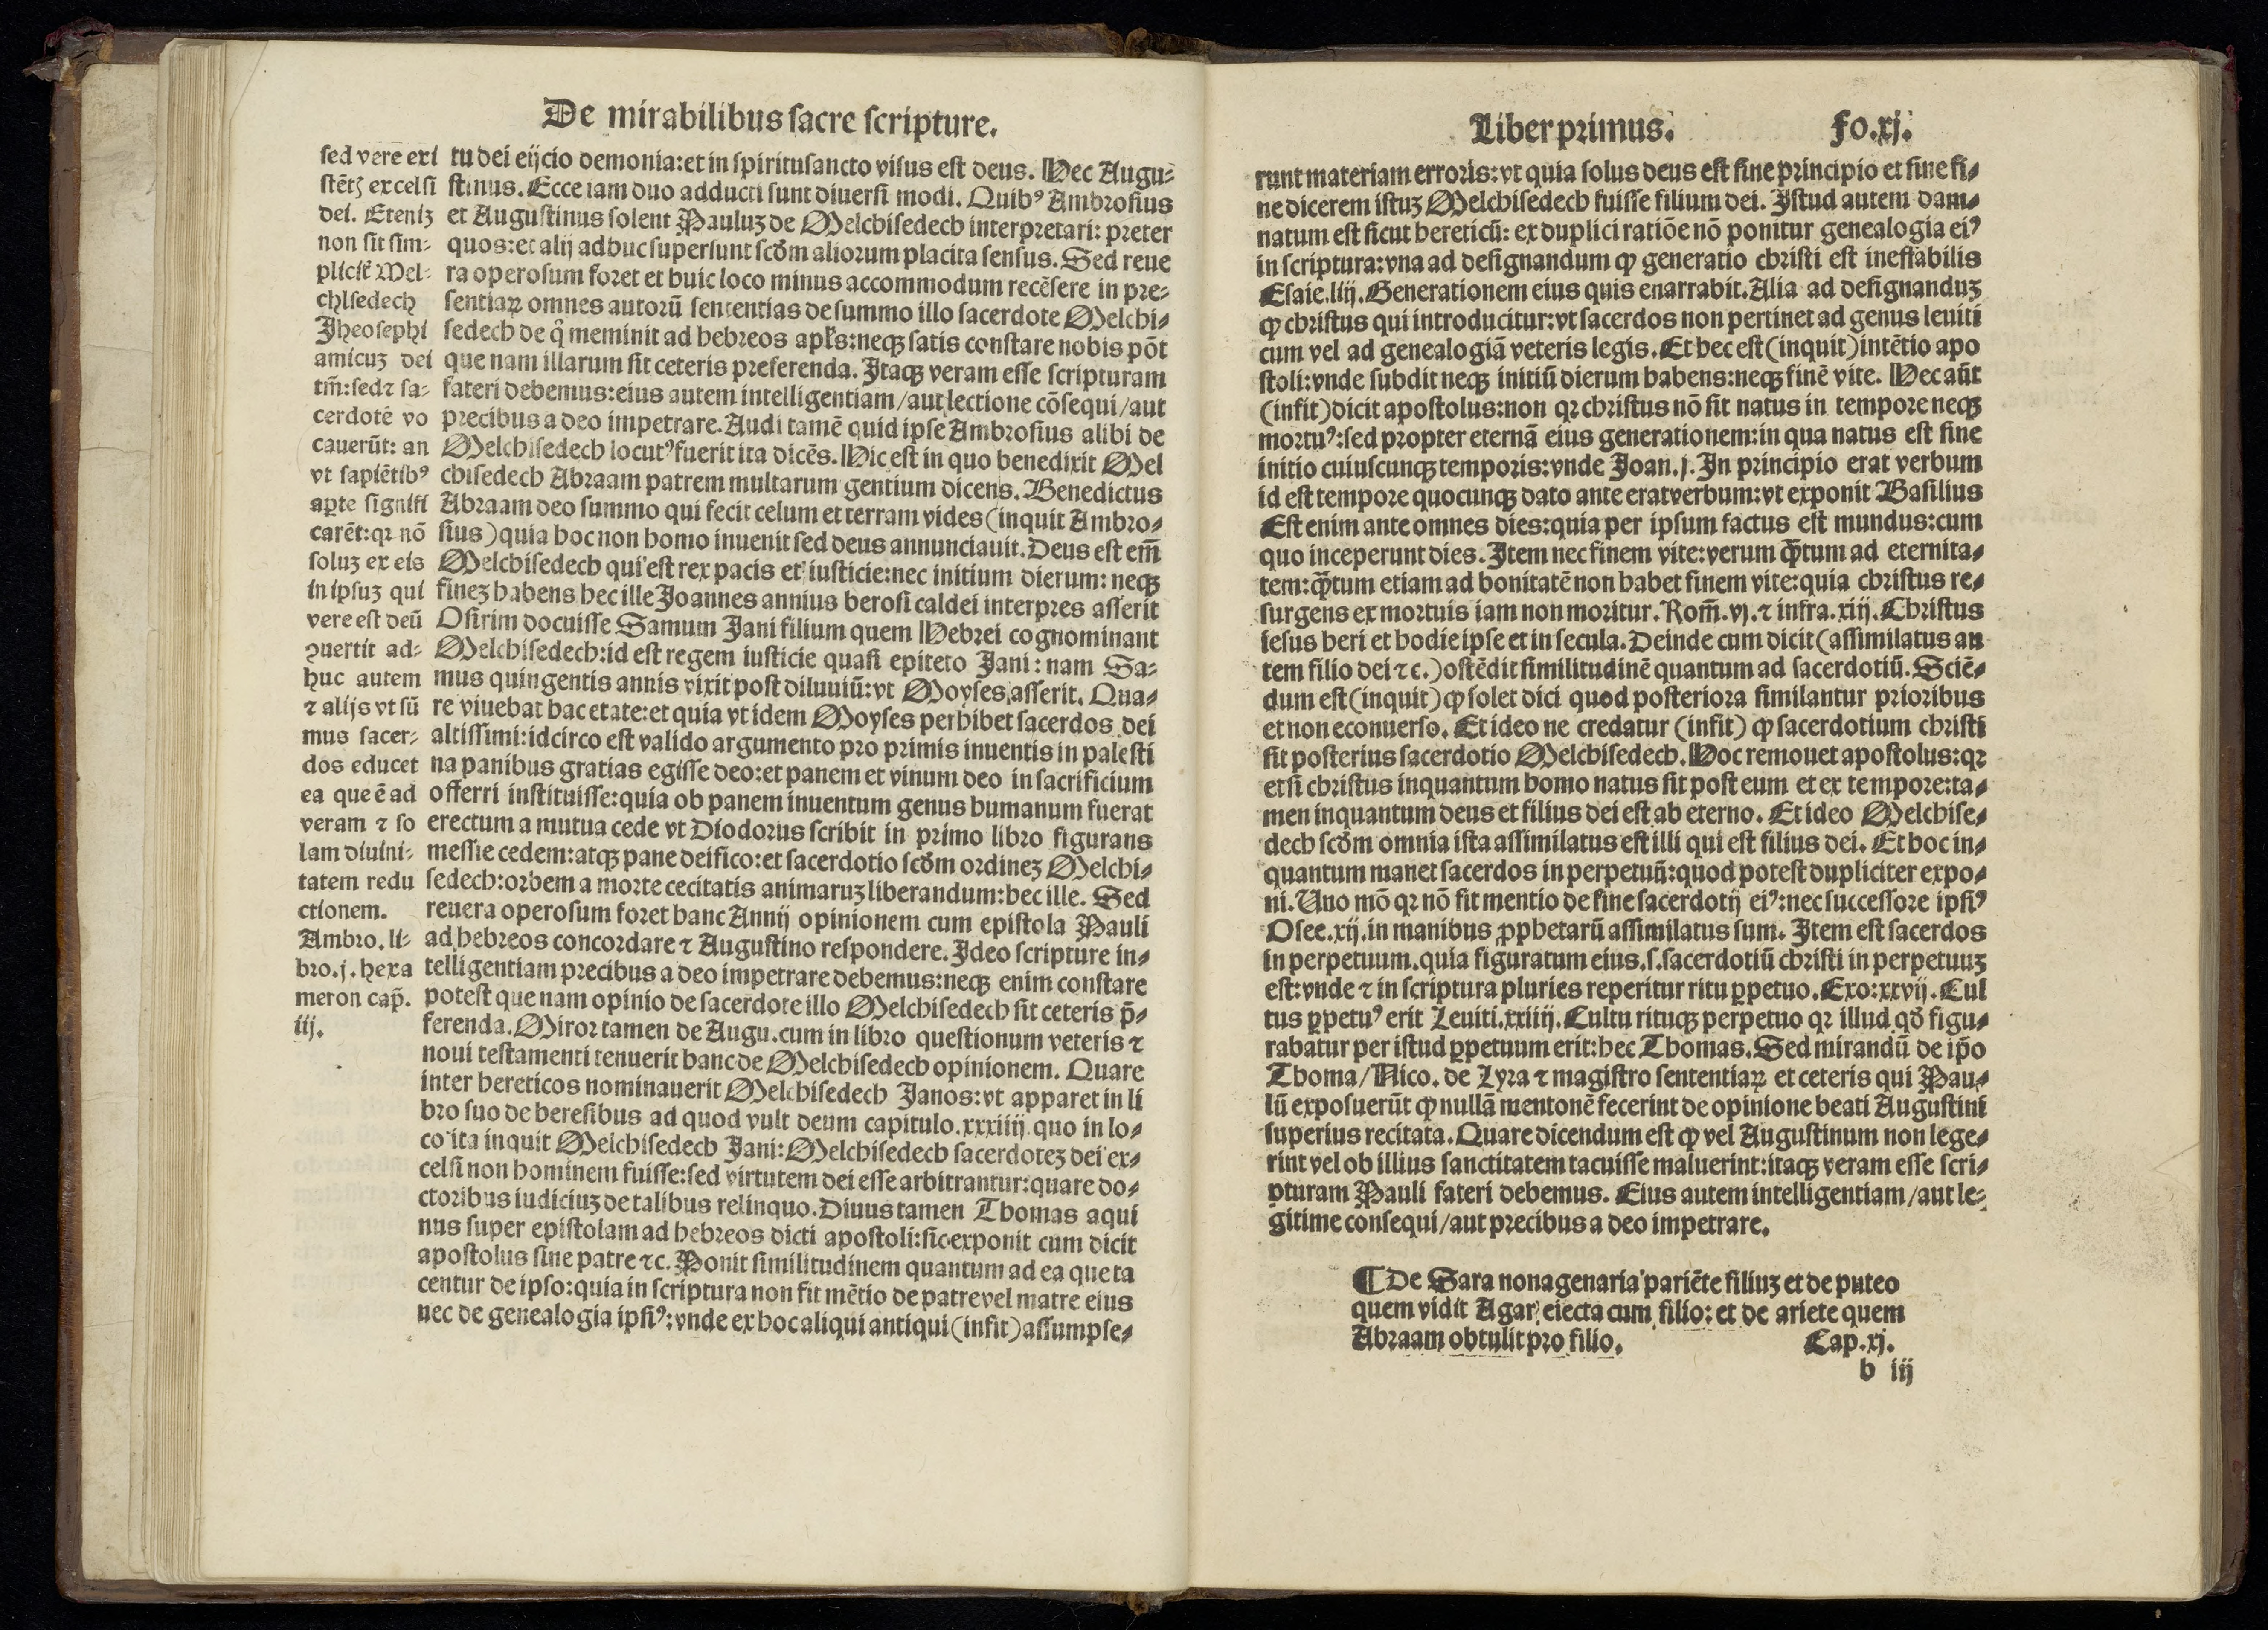 De mirabilibus sacre scripture.
sed vere exi
stēt͛ꝫ excelsi
dei. Eteniꝫ
non sit sim-
plicit̃ Mel-
chisedech
Iheosephi
amicuꝫ dei
tm̄:sed ⁊ sa-
cerdotē vo
cauerūt: an
vt sapiētibꝰ
aꝑte signifi
carēt:qꝛ nō
soluꝫ ex eis
in ipsuꝫ qui
vere est deū
ꝯuertit ad-
huc autem
⁊ alijs vt sū
mus sacer-
dos educet
ea que ē ad
veram ⁊ so
lam diuini-
tatem redu
ctionem.
Ambro. li-
bro.j. hexa
meron cap̄.
iij.
tu dei eijcio demonia:et in spiritusancto visus est deus. Hec Augu-
stinus. Ecce iam duo adducti sunt diuersi modi. Quibꝰ Ambrosius
et Augustinus solent Pauluꝫ de Melchisedech interpretari: preter
quos:et alij adhuc supersunt scd̄m aliorum placita sensus. Sed reue
ra operosum foret et huic loco minus accommodum recēsere in pre-
sentiaꝝ omnes autorū sententias de summo illo sacerdote Melchi-
sedech de q̄ meminit ad hebreos apl̄s:neqꝫ satis constare nobis pōt
que nam illarum sit ceteris preferenda. Itaqꝫ veram esse scripturam
fateri debemus:eius autem intelligentiam/aut lectione cōsequi/aut
precibus a deo impetrare. Audi tamē quid ipse Ambrosius alibi de
Melchisedech locutꝰ fuerit ita dicēs. Hic est in quo benedixit Mel
chisedech Abraam patrem multarum gentium dicens. Benedictus
Abraam deo summo qui fecit celum et terram vides (inquit Ambro-
sius) quia hoc non homo inuenit sed deus annunciauit. Deus est em̄
Melchisedech qui est rex pacis et iusticie:nec initium dierum: neqꝫ
fineꝫ habens hec ille Joannes annius berosi caldei interpres asserit
Osirim docuisse Samum Jani filium quem Hebrei cognominant
Melchisedech:id est regem iusticie quasi epiteto Jani: nam Sa-
mus quingentis annis vixit post diluuiū:vt Moyses asserit. Qua-
re viuebat hac etate:et quia vt idem Moyses perhibet sacerdos dei
altissimi:idcirco est valido argumento pro primis inuentis in palesti
na panibus gratias egisse deo:et panem et vinum deo in sacrificium
offerri instituisse:quia ob panem inuentum genus humanum fuerat
erectum a mutua cede vt Diodorus scribit in primo libro figurans
messie cedem:atqꝫ pane deifico:et sacerdotio scd̄m ordineꝫ Melchi-
sedech:orbem a morte cecitatis animaruꝫ liberandum:hec ille. Sed
reuera operosum foret hanc Annij opinionem cum epistola Pauli
ad hebreos concordare ⁊ Augustino respondere. Ideo scripture in-
telligentiam precibus a deo impetrare debemus:neqꝫ enim constare
potest que nam opinio de sacerdote illo Melchisedech sit ceteris p̄-
ferenda. Miror tamen de Augu. cum in libro questionum veteris ⁊
noui testamenti tenuerit hanc de Melchisedech opinionem. Quare
inter hereticos nominauerit Melchisedech Janos:vt apparet in li
bro suo de heresibus ad quod vult deum capitulo.xxxiiij. quo in lo-
co ita inquit Melchisedech Jani: Melchisedech sacerdoteꝫ dei ex-
celsi non hominem fuisse:sed virtutem dei esse arbitrantur:quare do-
ctoribus iudiciuꝫ de talibus relinquo. Diuus tamen Thomas aqui
nus super epistolam ad hebreos dicti apostoli:sic exponit cum dicit
apostolus sine patre ⁊c. Ponit similitudinem quantum ad ea que ta
centur de ipso:quia in scriptura non fit mētio de patre vel matre eius
nec de genealogia ipsiꝰ:vnde ex hoc aliqui antiqui (infit) assumpse-
Liber primus. fo.xj.
runt materiam erroris:vt quia solus deus est sine principio et sine fi-
ne dicerem istuꝫ Melchisedech fuisse filium dei. Istud autem dam-
natum est sicut hereticū: ex duplici ratiōe nō ponitur genealogia eiꝰ
in scriptura:vna ad designandum ꝙ generatio christi est ineffabilis
Esaie.liij. Generationem eius quis enarrabit. Alia ad designanduꝫ
ꝙ christus qui introducitur:vt sacerdos non pertinet ad genus leuiti
cum vel ad genealogiā veteris legis. Et hec est (inquit) intētio apo
stoli:vnde subdit neqꝫ initiū dierum habens:neqꝫ finē vite. Hec aūt
(infit) dicit apostolus:non qꝛ christus nō sit natus in tempore neqꝫ
mortuꝰ:sed propter eternā eius generationem:in qua natus est sine
initio cuiuscunqꝫ temporis:vnde Joan.j. In principio erat verbum
id est tempore quocunqꝫ dato ante erat verbum:vt exponit Basilius
Est enim ante omnes dies:quia per ipsum factus est mundus:cum
quo inceperunt dies. Item nec finem vite:verum q̄tum ad eternita-
tem:q̄tum etiam ad bonitatē non habet finem vite:quia christus re-
surgens ex mortuis iam non moritur. Rom̄.vj. ⁊ infra.xiij. Christus
iesus heri et hodie ipse et in secula. Deinde cum dicit (assimilatus au
tem filio dei ⁊c.) ostēdit similitudinē quantum ad sacerdotiū. Sciē-
dum est (inquit) ꝙ solet dici quod posteriora similantur prioribus
et non econuerso. Et ideo ne credatur (infit) ꝙ sacerdotium christi
sit posterius sacerdotio Melchisedech. Hoc remouet apostolus:qꝛ
etsi christus inquantum homo natus sit post eum et ex tempore:ta-
men inquantum deus et filius dei est ab eterno. Et ideo Melchise-
dech scd̄m omnia ista assimilatus est illi qui est filius dei. Et hoc in-
quantum manet sacerdos in perpetuū:quod potest dupliciter expo-
ni. Uno mō qꝛ nō fit mentio de fine sacerdotij eiꝰ:nec successore ipsiꝰ
Osee.xij. in manibus ꝓphetarū assimilatus sum. Item est sacerdos
in perpetuum. quia figuratum eius.s.sacerdotiū christi in perpetuuꝫ
est:vnde ⁊ in scriptura pluries reperitur ritu ꝑpetuo. Exo:xxvij. Cul
tus ꝑpetuꝰ erit Leuiti.xxiiij. Cultu rituqꝫ perpetuo qꝛ illud qd̄ figu-
rabatur per istud ꝑpetuum erit:hec Thomas. Sed mirandū de ip̄o
Thoma/Nico. de Lyra ⁊ magistro sententiaꝝ et ceteris qui Pau-
lū exposuerūt ꝙ nullā mentonē fecerint de opinione beati Augustini
superius recitata. Quare dicendum est ꝙ vel Augustinum non lege-
rint vel ob illius sanctitatem tacuisse maluerint:itaqꝫ veram esse scri-
pturam Pauli fateri debemus. Eius autem intelligentiam/aut le-
gitime consequi/aut precibus a deo impetrare.
¶ De Sara nonagenaria pariēte filiuꝫ et de puteo
quem vidit Agar eiecta cum filio: et de ariete quem
Abraam obtulit pro filio. Cap.xj.
b iij